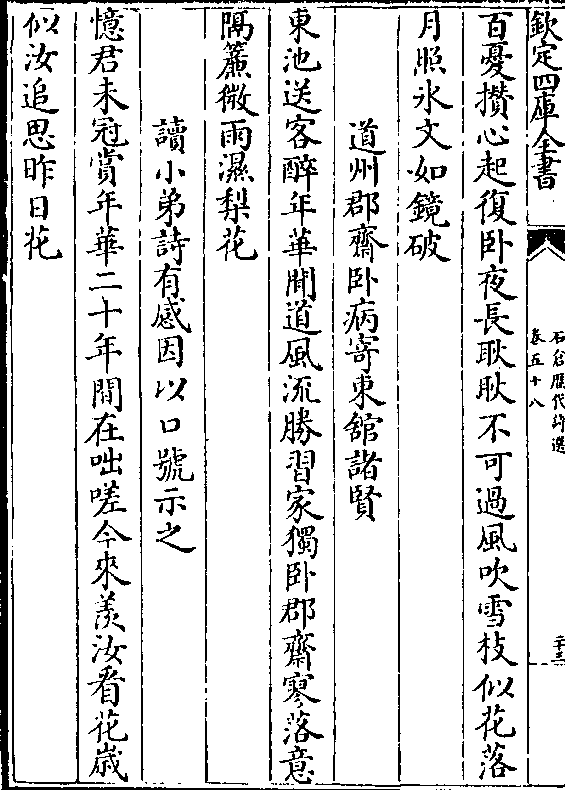 欽定四庫全書
石倉歷代詩選
卷五十八
二十三
百憂攢心起復卧夜長耿耿不可過風吹雪枝似花落
月照氷文如鏡破
道州郡齋卧病寄東館諸賢
東池送客醉年華聞道風流勝習家獨卧郡齋寥落意
隔簾微雨濕梨花
讀小弟詩有感因以口號示之
憶君未冠賞年華二十年間在咄嗟今來羨汝看花歳
似汝追思昨日花